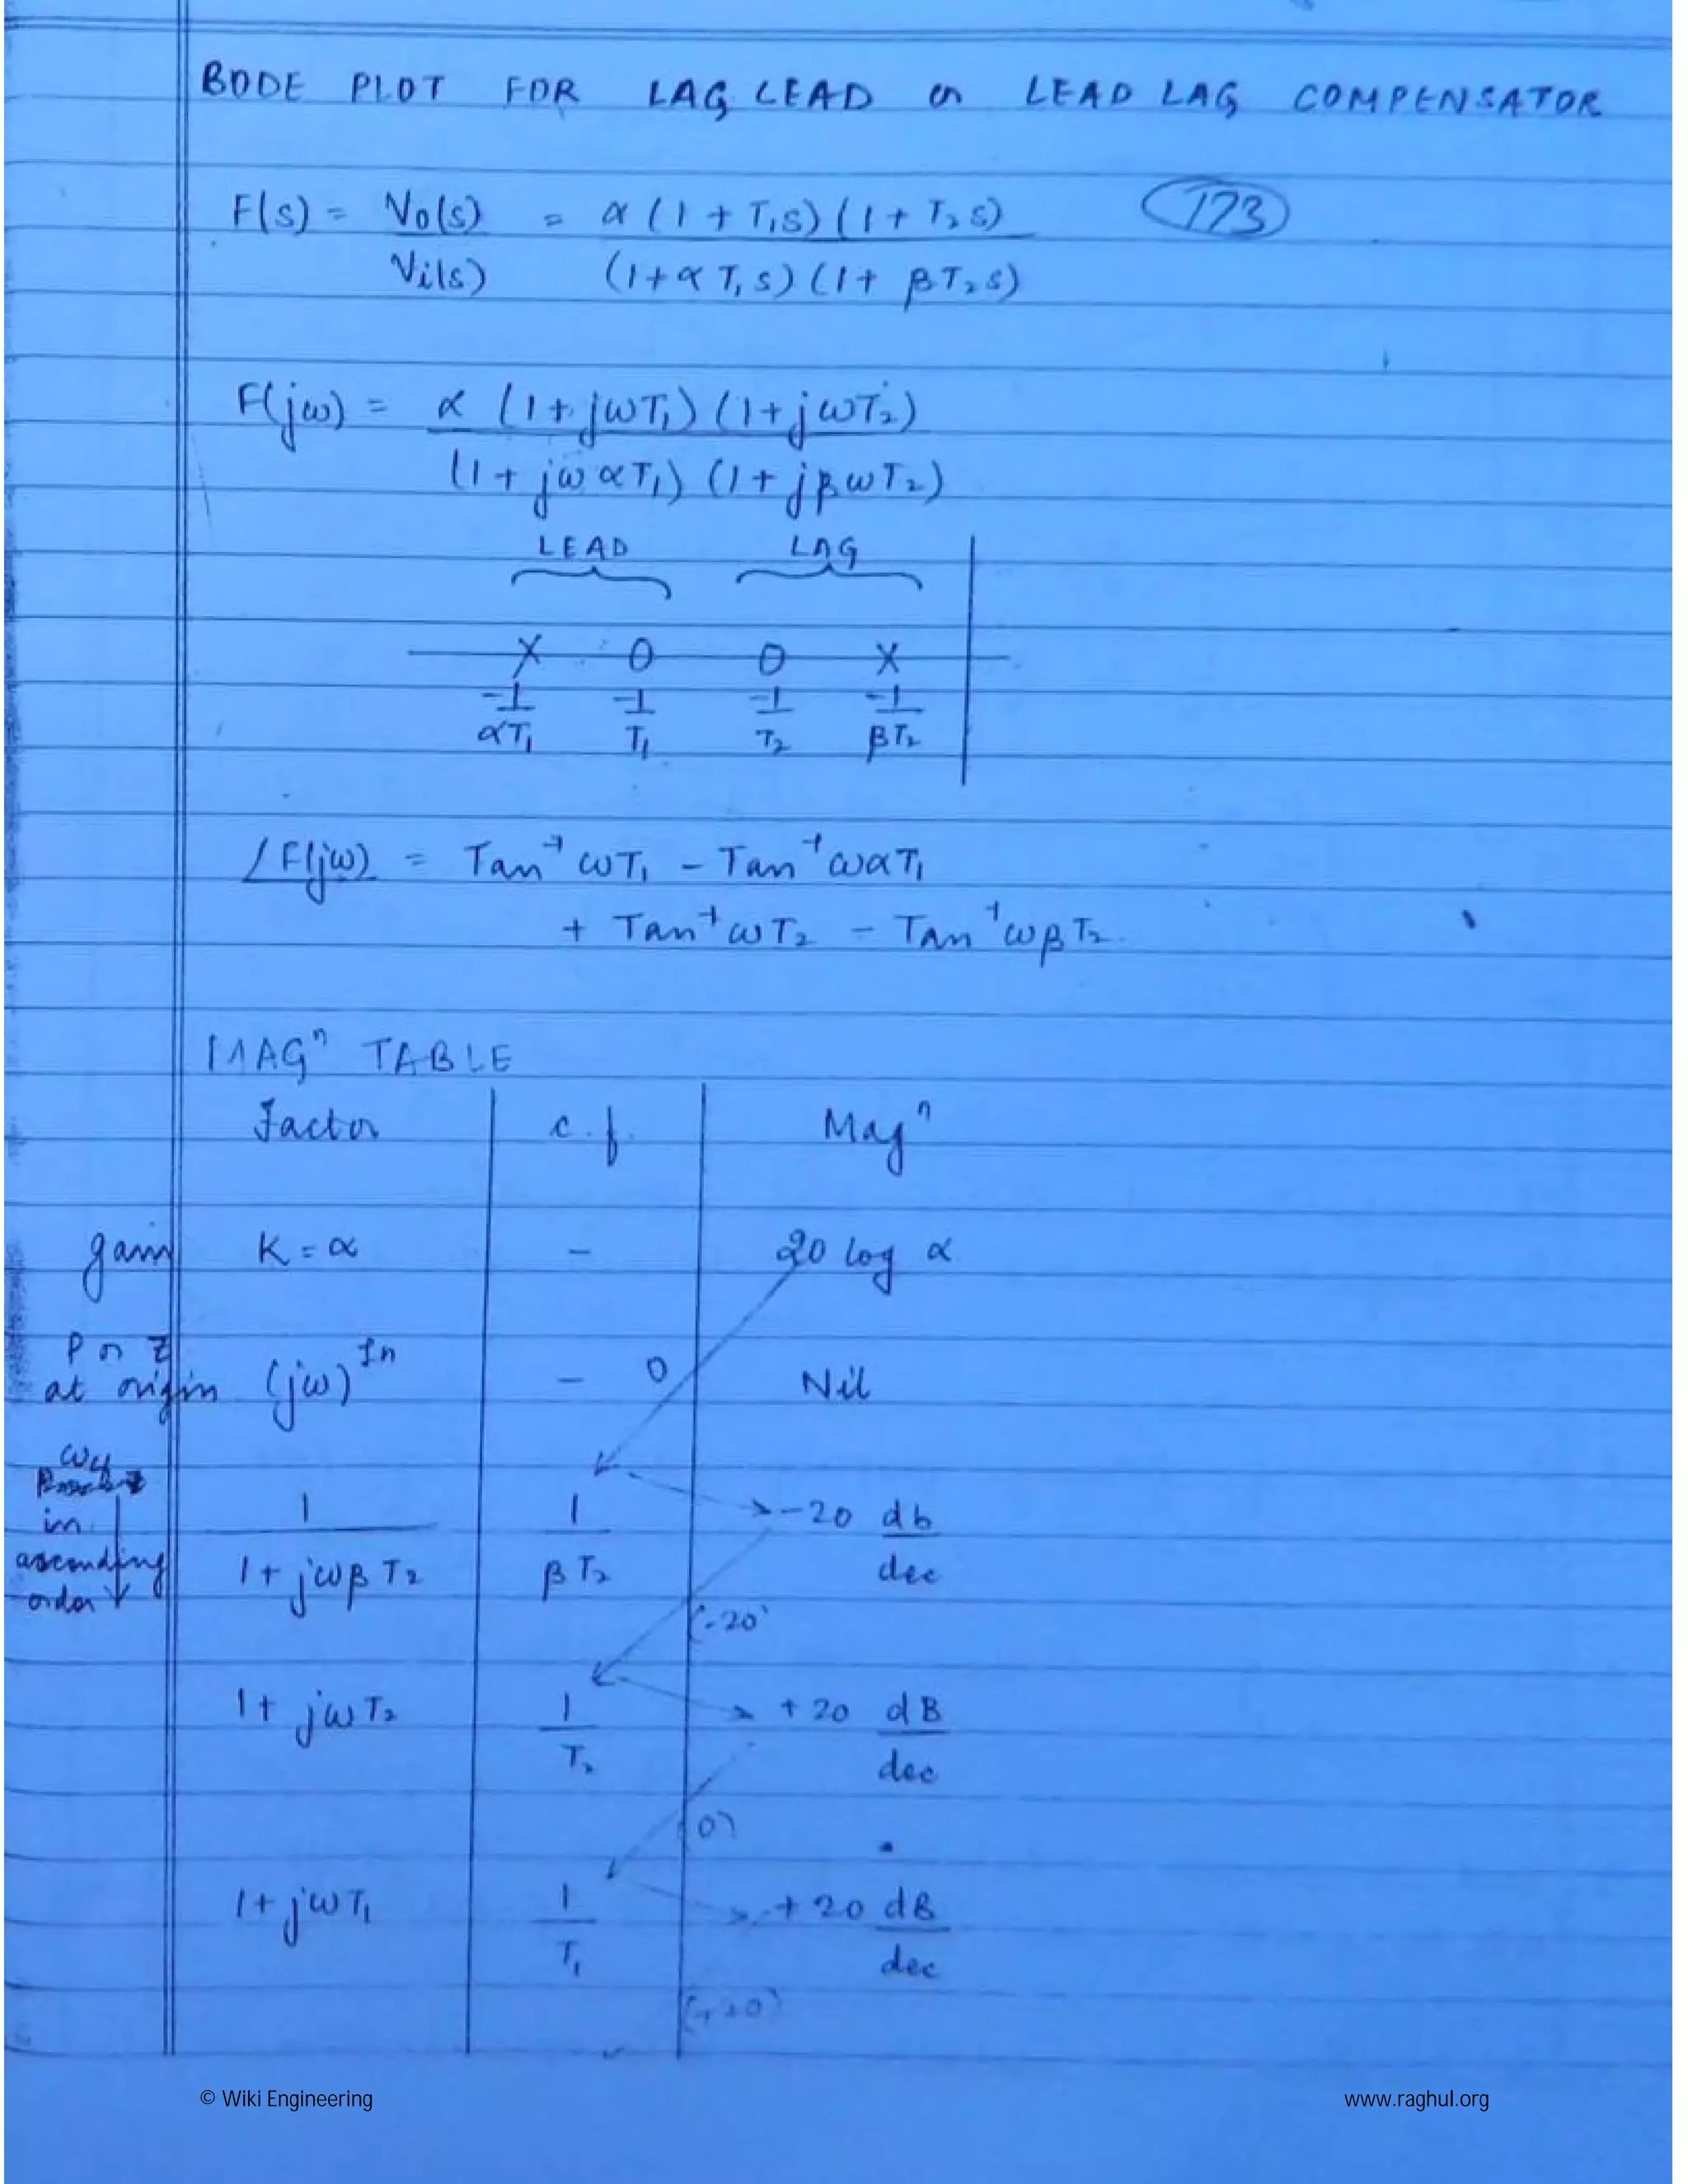 BODE PLOT FOR LAG LEAD or LEAD LAG COMPENSATOR
F(s) = Vo(s) / Vi(s) = α (1 + T₁s) (1 + T₂s) / (1 + α T₁ s) (1 + β T₂ s)
173
F(jω) = α (1 + jωT₁) (1 + jωT₂) / (1 + jω αT₁) (1 + jβωT₂)
LEAD LAG
X O O X
-1/αT₁ -1/T₁ -1/T₂ -1/βT₂
∠F(jω) = Tan⁻¹ ωT₁ - Tan⁻¹ ωαT₁
+ Tan⁻¹ ωT₂ - Tan⁻¹ ωβT₂
MAGⁿ TABLE
Factor c.f. Magⁿ
gain K = α - 20 log α
P or Z at origin (jω)^±n - 0 Nil
in ascending order
1 / 1 + jωβT₂ 1/βT₂ -20 db/dec
(-20)
1 + jωT₂ 1/T₂ +20 dB/dec
0)
1 + jωT₁ 1/T₁ +20 dB/dec
(+20)
© Wiki Engineering www.raghul.org